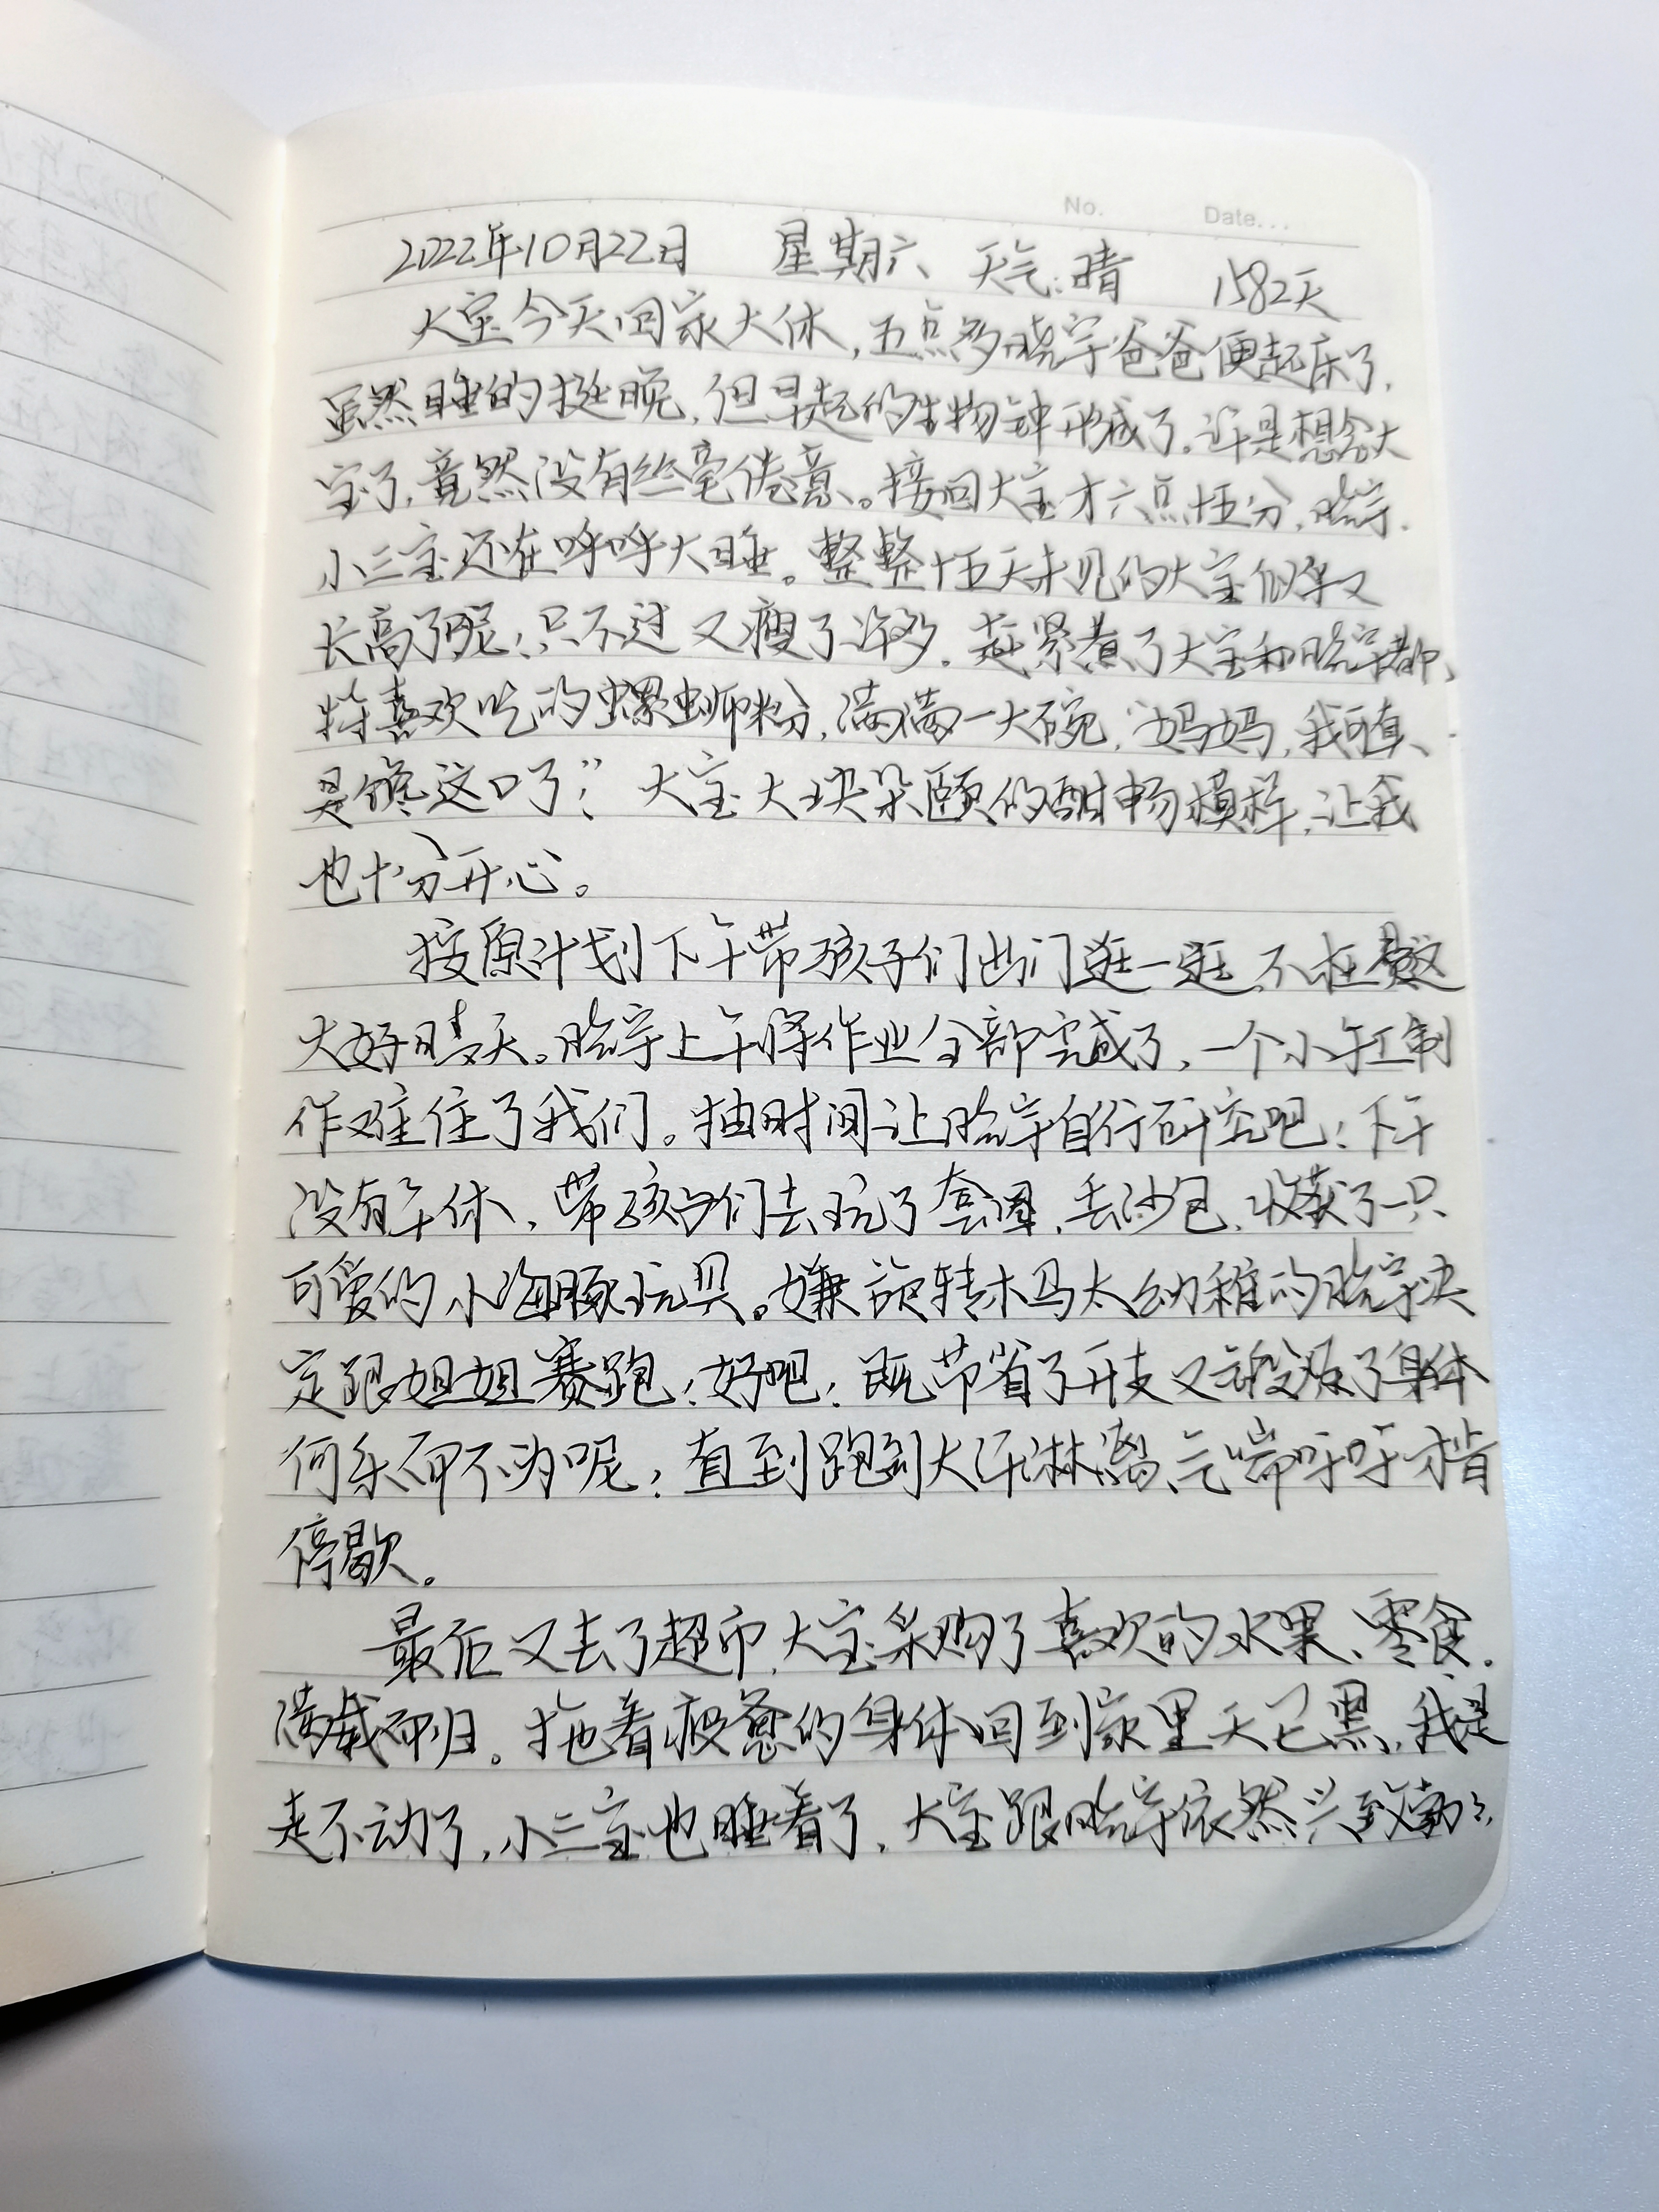 No. Date....
2022年10月22日 星期六 天气:晴 1582天
大宝今天回家大休,五点多晓宇爸爸便起床了,
虽然睡的挺晚,但早起的生物钟形成了。许是想念大
宝了,竟然没有丝毫倦意。接回大宝才六点十五分,晓宇、
小三宝还在呼呼大睡。整整十五天未见的大宝似乎又
长高了呢!只不过又瘦了许多。赶紧煮了大宝和晓宇都
特喜欢吃的螺蛳粉,满满一大碗,“妈妈,我可真
是馋这口了!”大宝大块朵颐的酣畅模样,让我
也十分开心。
按原计划下午带孩子们出门逛一逛,不枉费这
大好晴天。晓宇上午将作业全部完成了,一个小手工制
作难住了我们。抽时间让晓宇自行研究吧!下午
没有午休,带孩子们去玩了套圈,丢沙包,收获了一只
可爱的小海豚玩具。嫌旋转木马太幼稚的晓宇决
定跟姐姐赛跑!好吧!既节省了开支又锻炼了身体
何乐而不为呢!直到跑到大汗淋漓、气喘吁吁才肯
停歇。
最后又去了超市,大宝采购了喜欢的水果、零食。
满载而归。拖着疲惫的身体回到家里天已黑,我是
走不动了,小三宝也睡着了,大宝跟晓宇依然兴致勃勃,